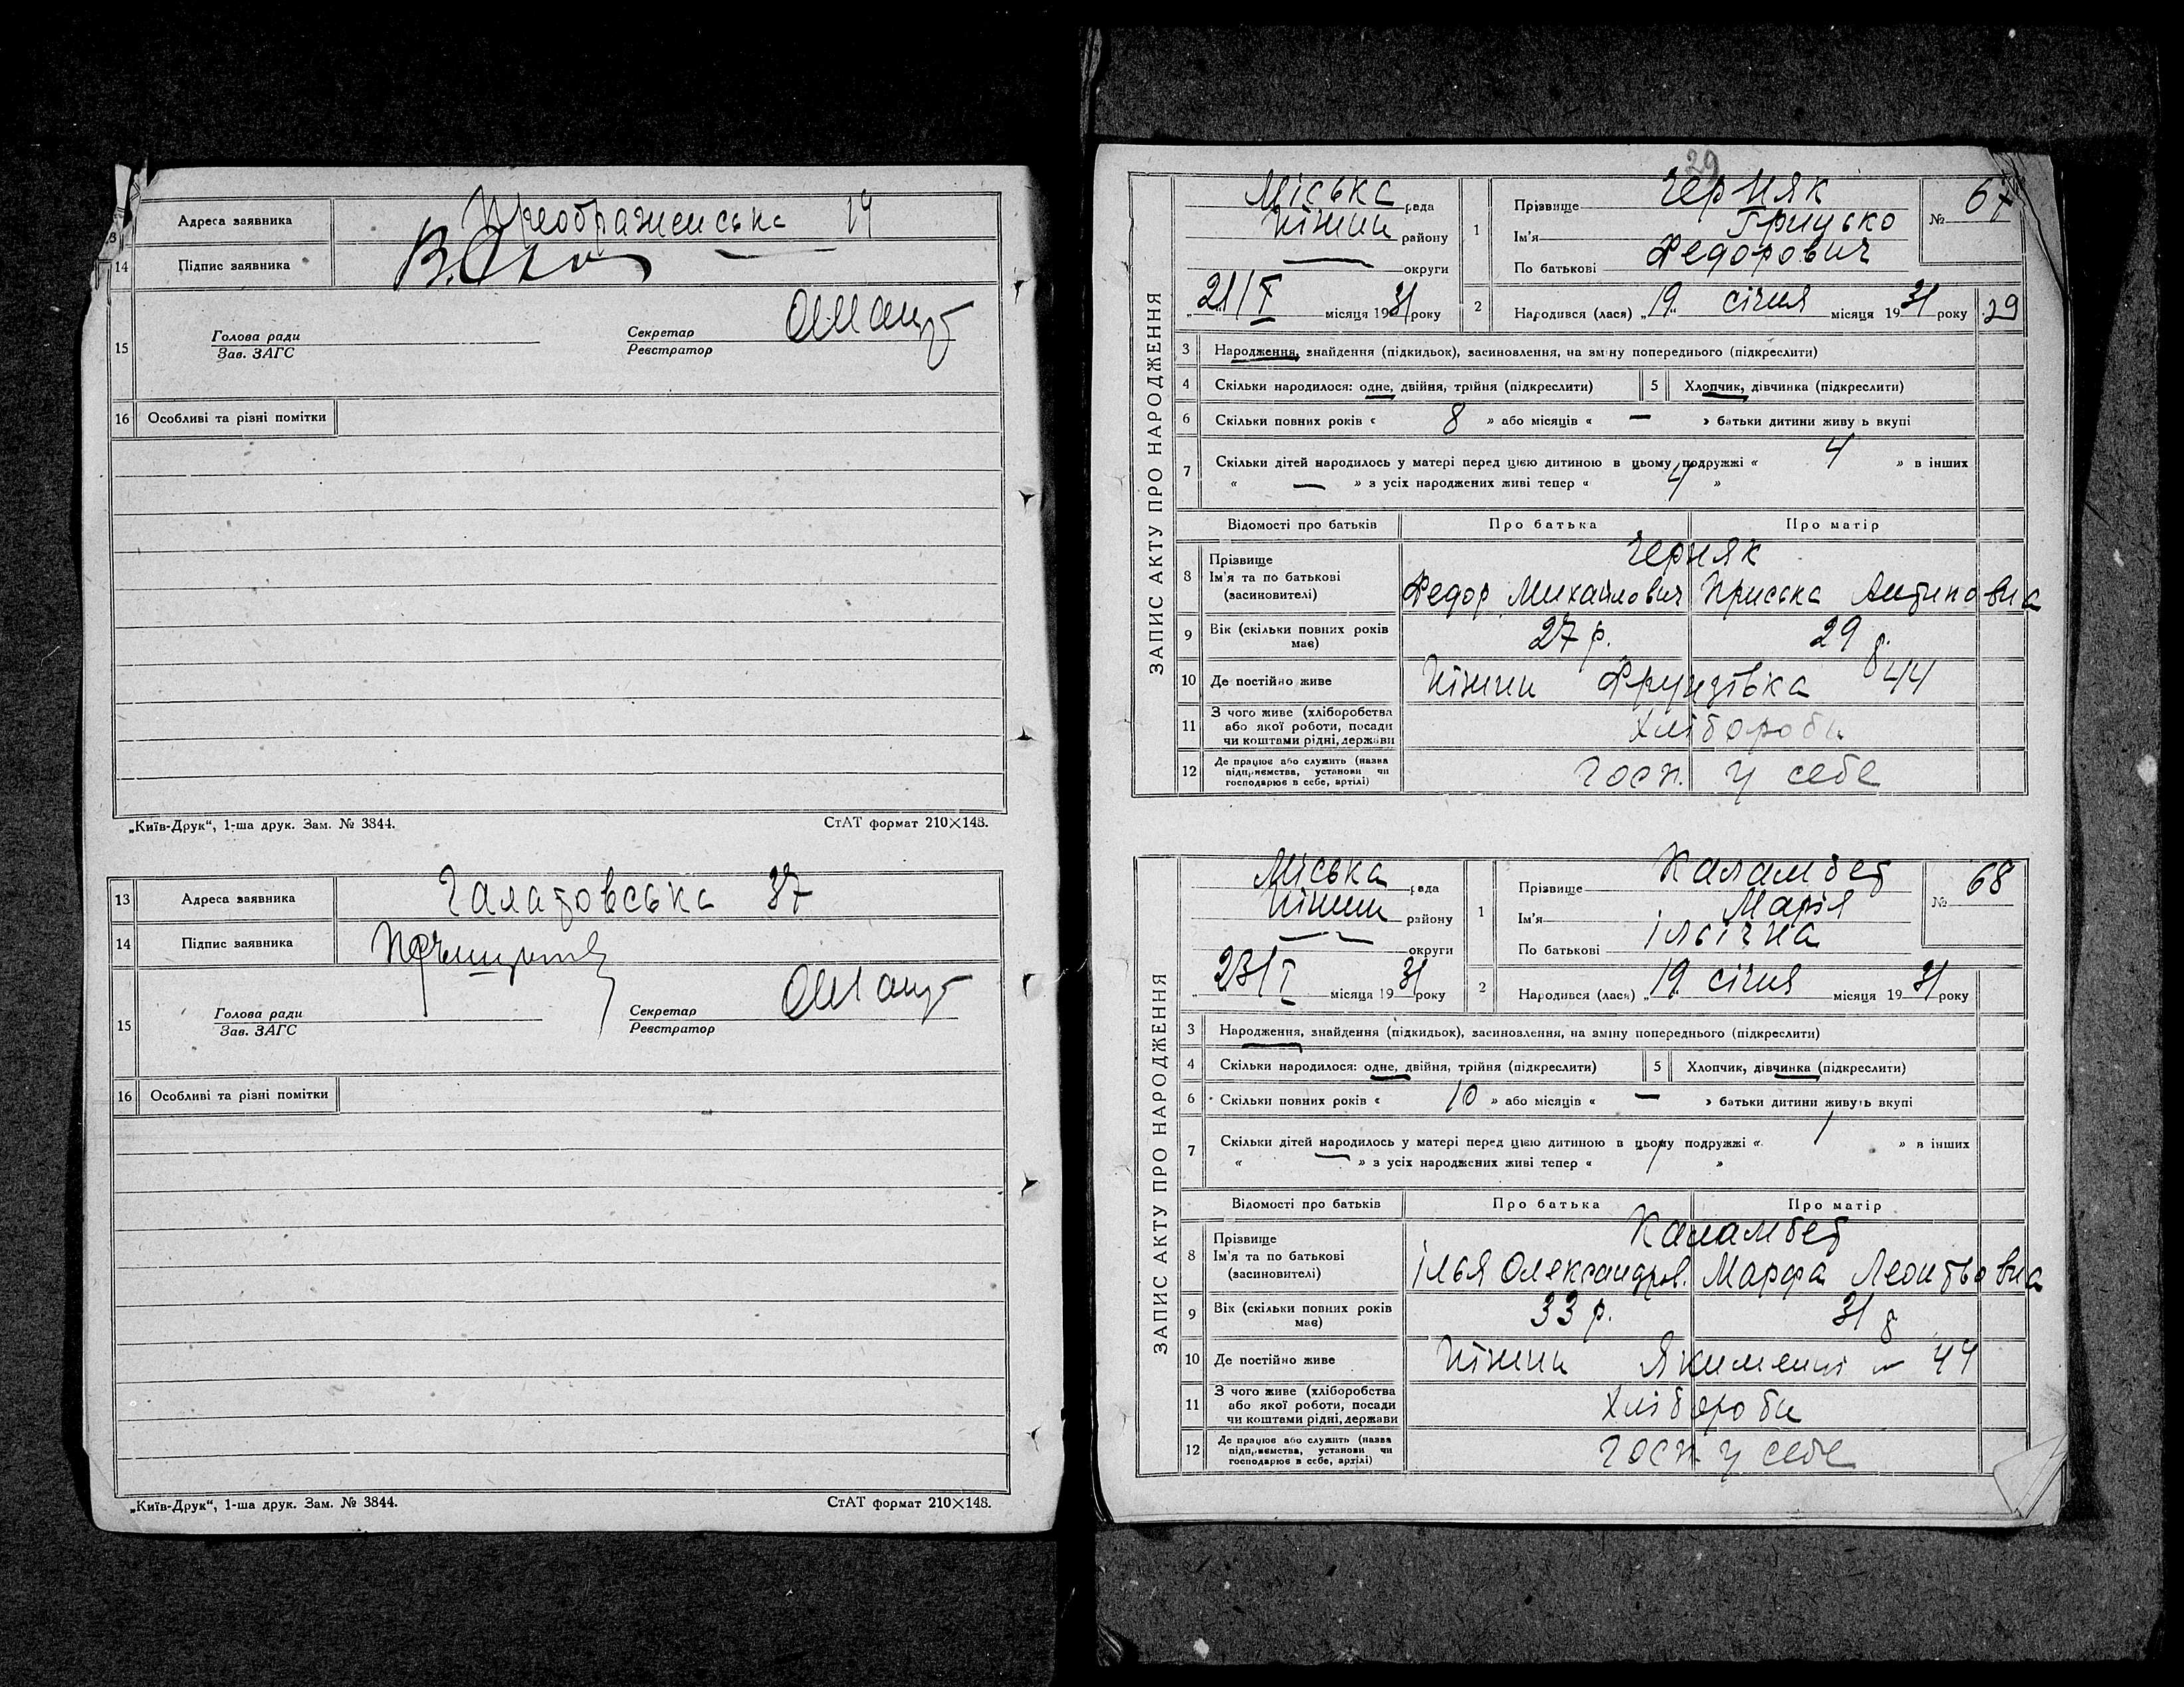 13
Адреса заявника
Преображенська 14
14
Підпис заявника
15
Голова ради
Зав. ЗАГС
Секретар
Реєстратор
16
Особливі та різні помітки
„Київ-Друк“, 1-ша друк. Зам. № 3844.
СтАТ формат 210×148.
13
Адреса заявника
Галатовська 37
14
Підпис заявника
15
Голова ради
Зав. ЗАГС
Секретар
Реєстратор
16
Особливі та різні помітки
„Київ-Друк“, 1-ша друк. Зам. № 3844.
СтАТ формат 210×148.
29
ЗАПИС АКТУ ПРО НАРОДЖЕННЯ
Міська рада
Ніжин району
— округи
„21/I місяця 1931 року
1
Прізвище Черняк
Ім'я Грицько
По батькові Федорович
№ 67
2
Народився (лася) „19“ січня місяця 1931 року
29
3
Народження, знайдення (підкидьок), засиновлення, на зміну попереднього (підкреслити)
4
Скільки народилося: одне, двійня, трійня (підкреслити)
5
Хлопчик, дівчинка (підкреслити)
6
Скільки повних років « 8 » або місяців « — » батьки дитини живуть вкупі
7
Скільки дітей народилось у матері перед цією дитиною в цьому подружжі « 4 » в інших
« — » з усіх народжених живі тепер « 4 »
Відомості про батьків
Про батька
Про матір
8
Прізвище
Ім'я та по батькові
(засиновителі)
Черняк
Федор Михайлович
Приська Антиповна
9
Вік (скільки повних років
має)
27 р.
29 р.
10
Де постійно живе
Ніжин Фрунзівка 44
11
З чого живе (хліборобства
або якої роботи, посади
чи коштами рідні, держави
Хлібороби
12
Де працює або служить (назва
підприємства, установи чи
господарює в себе, артілі)
Госп. у себе
ЗАПИС АКТУ ПРО НАРОДЖЕННЯ
Міська рада
Ніжин району
— округи
„23/I місяця 1931 року
1
Прізвище Каламбет
Ім'я Марія
По батькові Ільїчна
№ 68
2
Народився (лася) „19“ січня місяця 1931 року
3
Народження, знайдення (підкидьок), засиновлення, на зміну попереднього (підкреслити)
4
Скільки народилося: одне, двійня, трійня (підкреслити)
5
Хлопчик, дівчинка (підкреслити)
6
Скільки повних років « 10 » або місяців « — » батьки дитини живуть вкупі
7
Скільки дітей народилось у матері перед цією дитиною в цьому подружжі « 1 » в інших
« — » з усіх народжених живі тепер « 1 »
Відомості про батьків
Про батька
Про матір
8
Прізвище
Ім'я та по батькові
(засиновителі)
Каламбет
Ілья Олександров.
Марфа Леонтьовна
9
Вік (скільки повних років
має)
33 р.
31 р
10
Де постійно живе
Ніжин 44
11
З чого живе (хліборобства
або якої роботи, посади
чи коштами рідні, держави
Хлібороби
12
Де працює або служить (назва
підприємства, установи чи
господарює в себе, артілі)
Госп у себе